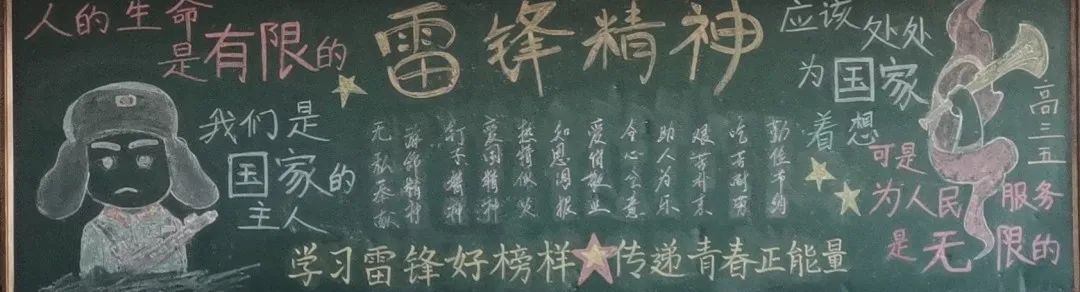 人的生命
是有限的
雷锋精神
我们是
国家的
主人
应该
处处
为国家
着想
勤俭节约
吃苦耐劳
艰苦朴素
助人为乐
全心全意
爱岗敬业
知恩图报
爱国精神
钉子精神
精神
无私奉献
可是
为人民服务
是无限的
高三五
学习雷锋好榜样
传递青春正能量